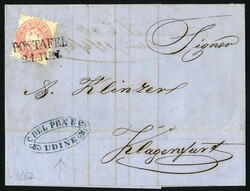 PONTAFEL
24. JUN.
Signor
A. Klinzer
C. DEL PRA E C.
UDINE
Klagenfurt